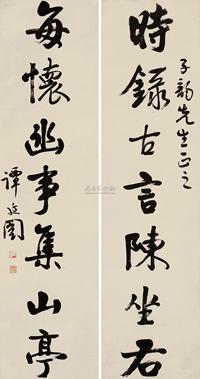 子韵先生正之
時錄古言陳坐右
每懷幽事集山亭
譚延闓